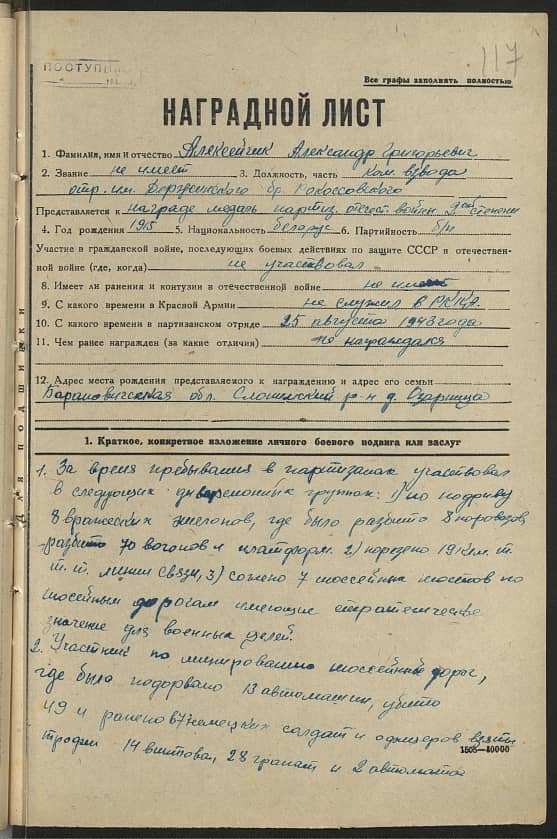 117
ПОСТУПИ
Все графы заполнять полностью
НАГРАДНОЙ ЛИСТ
1. Фамилия, имя и отчество Алексейчик Александр Григорьевич
2. Звание не имеет 3. Должность, часть Ком. взвода
отр. им. Дзержинского бр. Рокоссовского
Представляется к награде медаль партиз. отечест. войны 2ой степени
4. Год рождения 1915 5. Национальность беларус 6. Партийность б/п
Участие в гражданской войне, последующих боевых действиях по защите СССР и отечествен-
ной войне (где, когда) не участвовал
8. Имеет ли ранения и контузии в отечественной войне не имеет
9. С какого времени в Красной Армии не служил в РККА.
10. С какого времени в партизанском отряде 25 августа 1943 года
11. Чем ранее награжден (за какие отличия) не награждался
12. Адрес места рождения представляемого к награждению и адрес его семьи
Барановичская обл. Слонимский р-н д. Озарница
Для подшивки
1. Краткое, конкретное изложение личного боевого подвига или заслуг
1. За время пребывания в партизанах участвовал
в следующих диверсионных группах: 1) по подрыву
8 вражеских эшелонов, где было разбито 8 паровозов,
разбито 70 вогонов и платформ. 2) порезено 19 клм. т.
т. т. линии связи, 3) сожено 7 шоссейных мостов по
шосейным дорогам имеющие стратегическе
значение для военных целей.
2. Участник по минированию шоссейных дорог,
где было подорвано 13 автомашин, убито
49 и ранено 67 немецких солдат и офицеров взяты
трофеи 14 винтовок, 28 гранат и 2 автомата
1505—40000